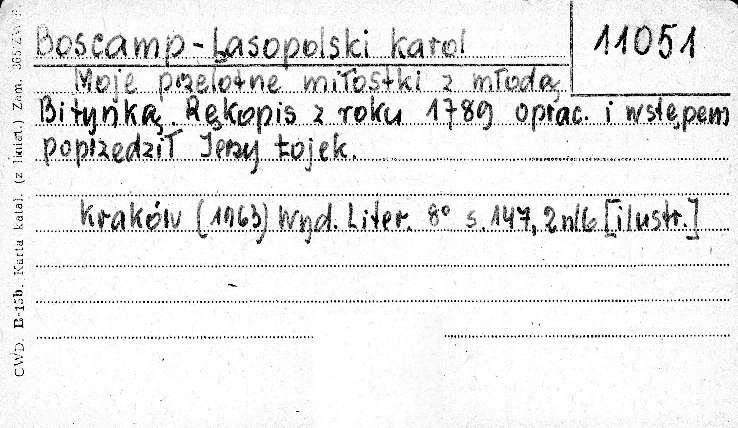 Boscamp-Lasopolski Karol
11051
Moje przelotne miłostki z młodą
Bitynką. Rękopis z roku 1789 oprac. i wstępem
poprzedził Jerzy Łojek.
Kraków (1963) Wyd. Liter. 8° s. 147, 2 nlb [ilustr.]
CWD. E-15b. Karta katal. (z liniat.) Zam.